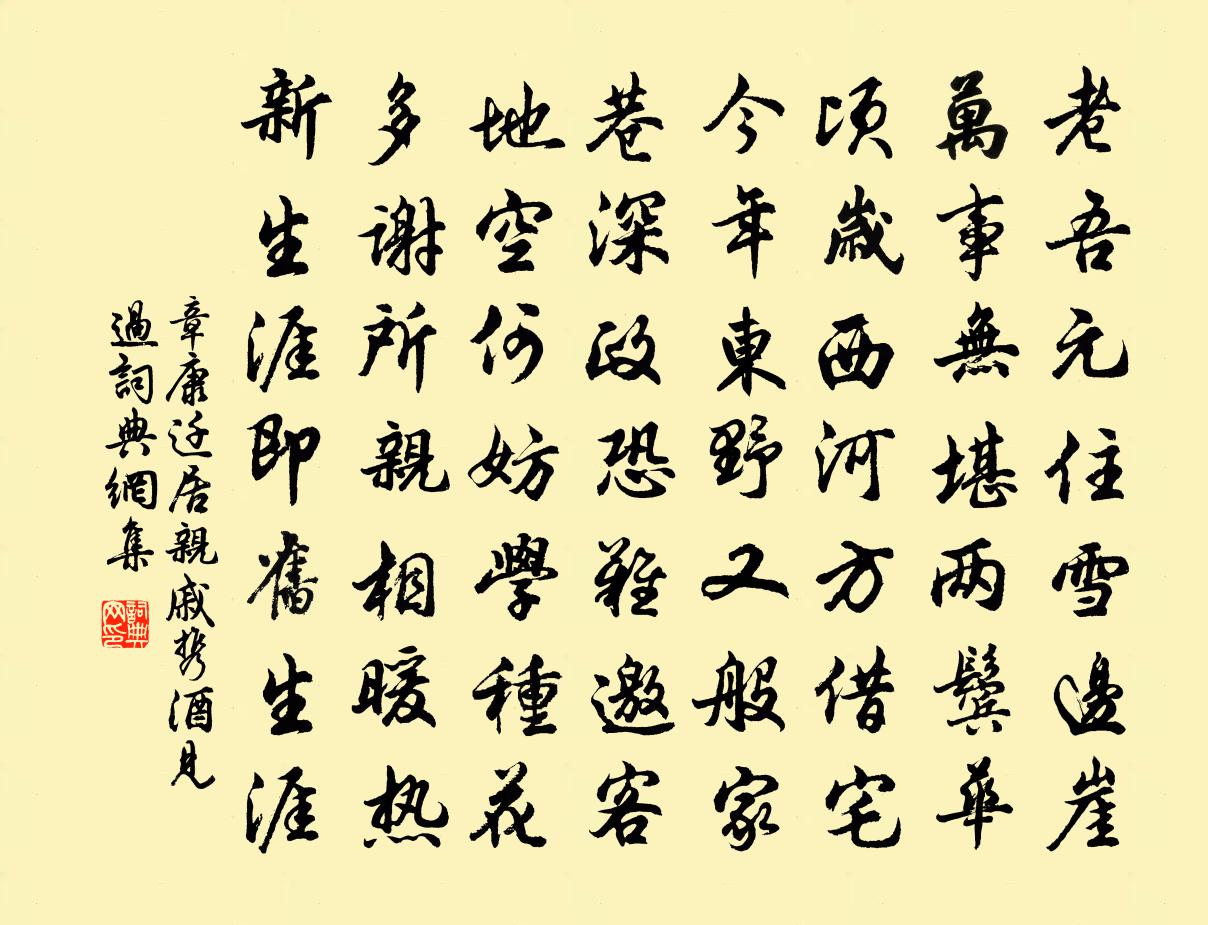 老吾元住雪邊崖
萬事無堪兩鬢華
頃歲西河方借宅
今年東野又般家
巷深政恐難邀客
地空何妨學種花
多謝所親相暖热
新生涯即舊生涯
章康迁居親戚携酒見
過詞典網集
詞典
网印